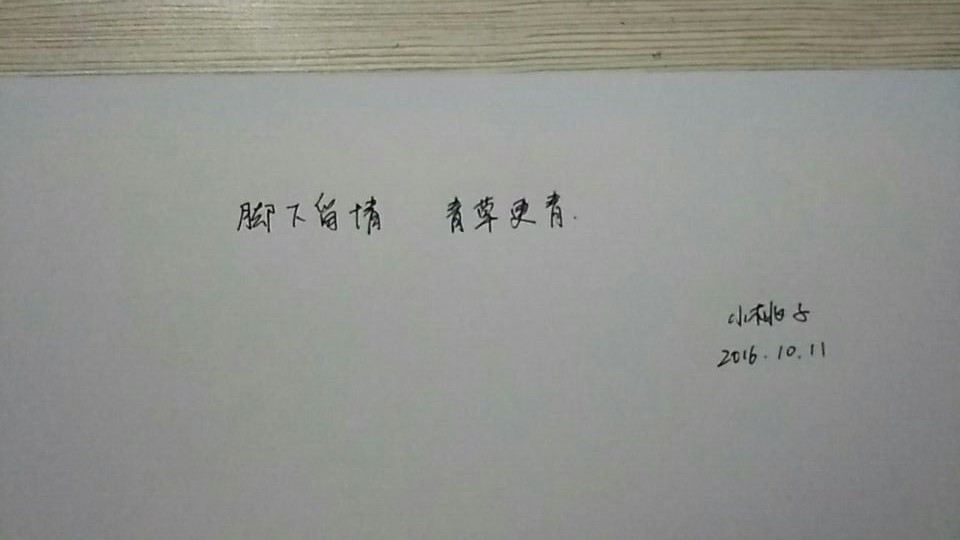 脚下留情 青草更青.
小桃子
2016.10.11